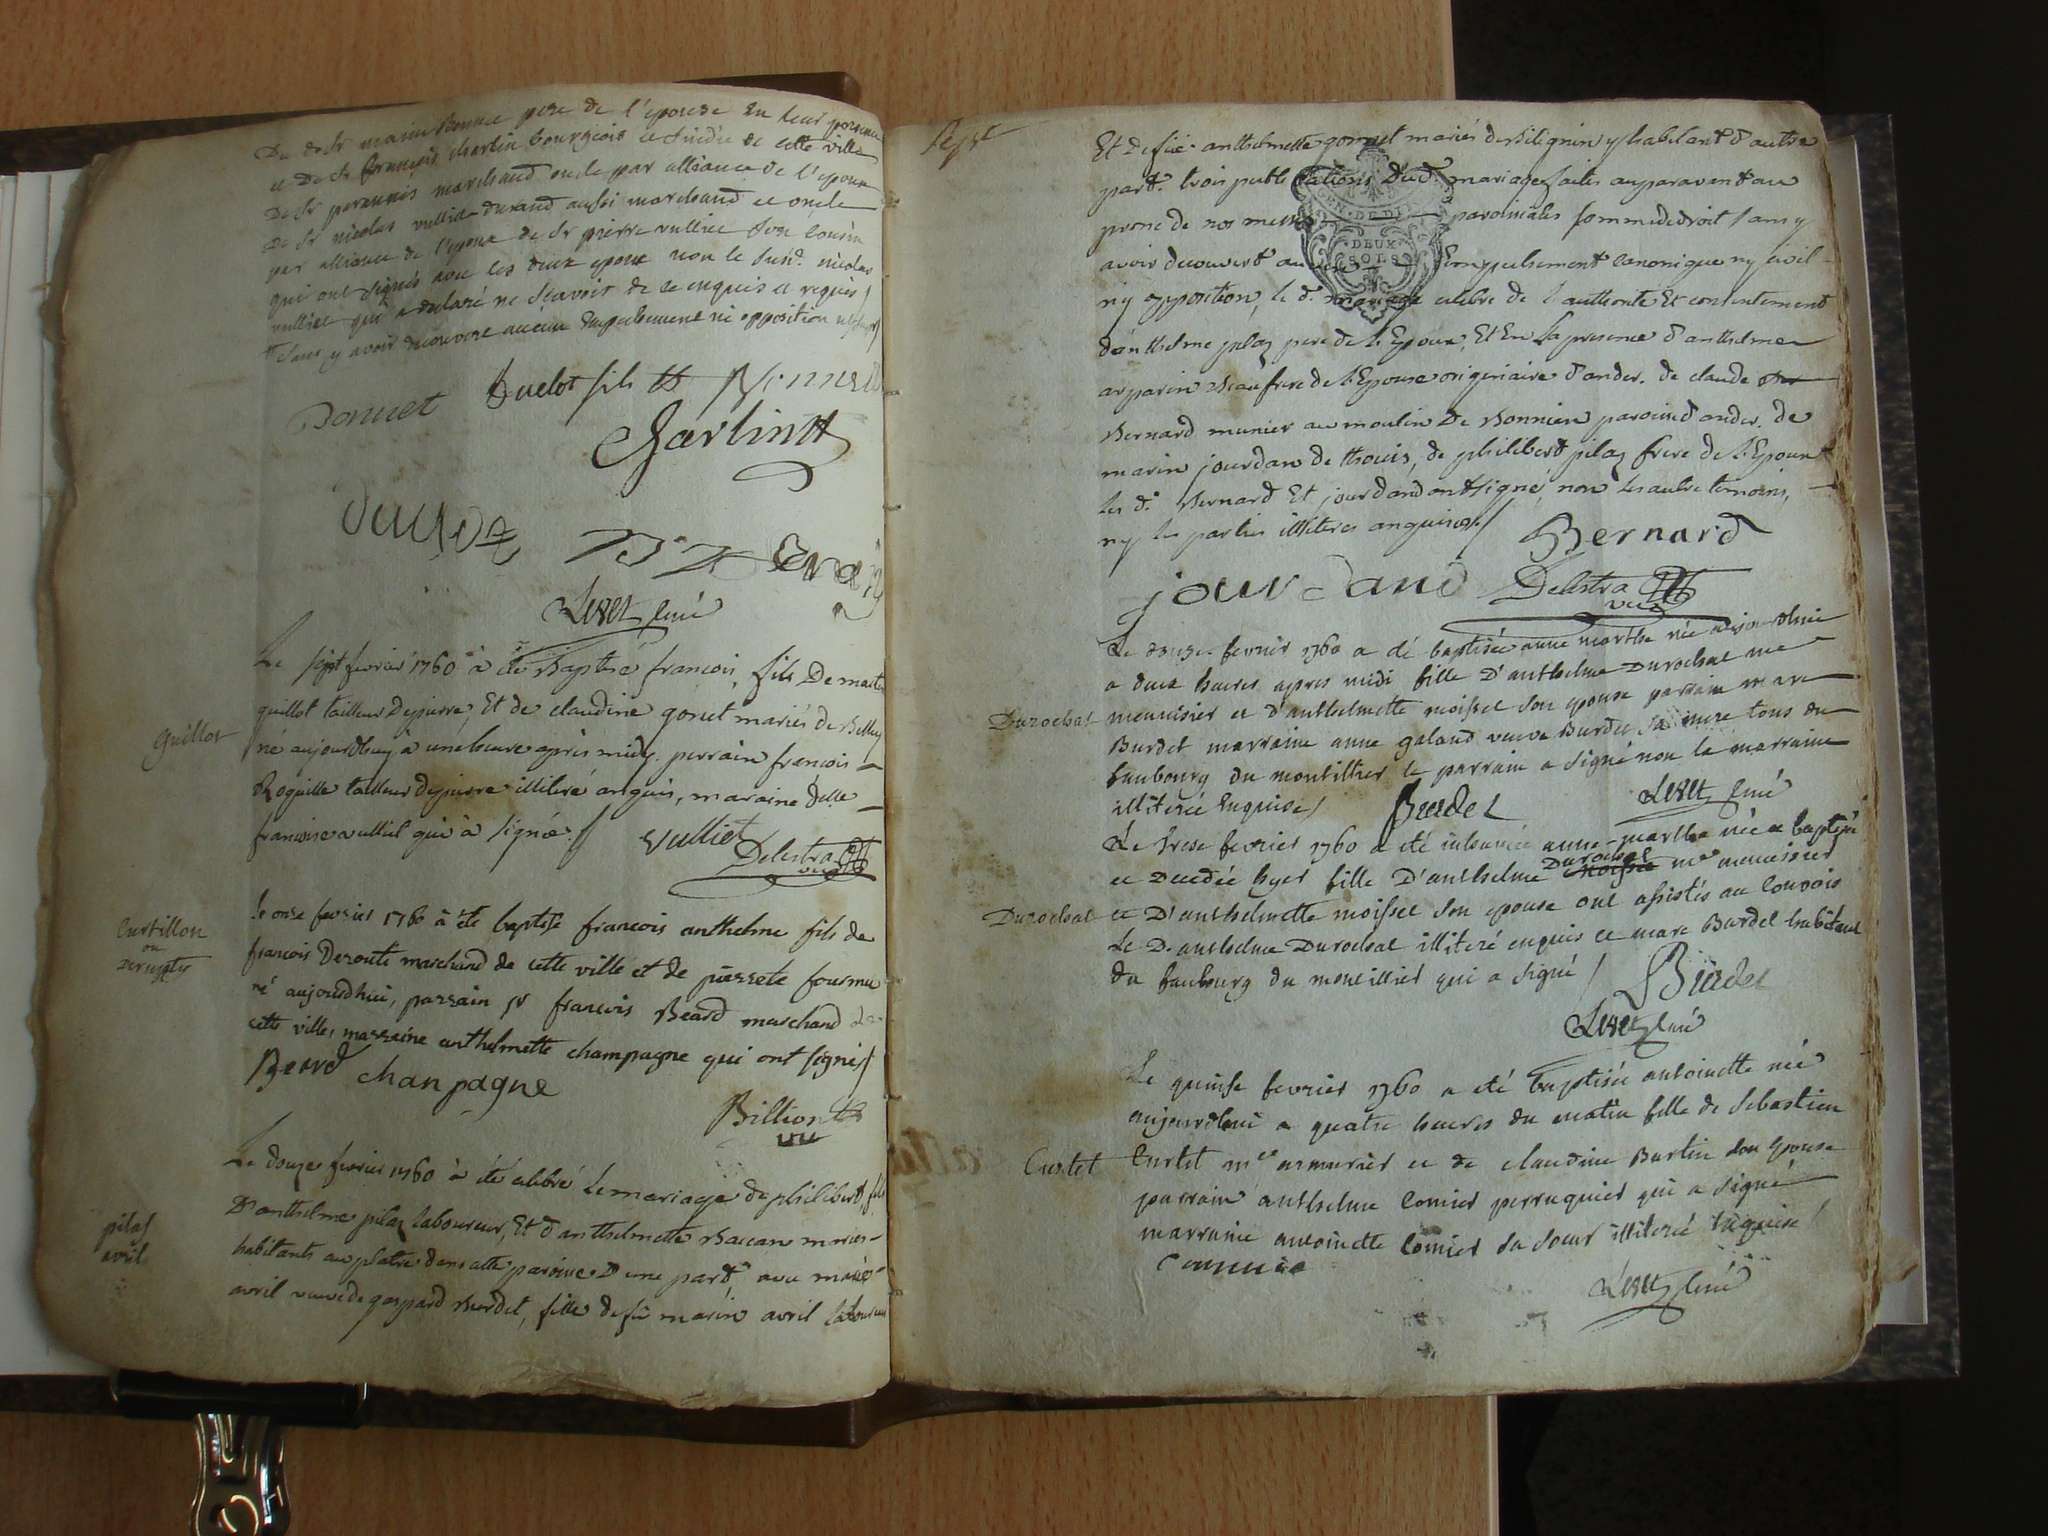 Du de Sr marin Bonnet pere de l'epouse En leur presence
et De Sr françois martin bourgeois et sindic de cette ville
De Sr marchand oncle par alliance de l'epoux
De Sr nicolas vulliet durand aussi marchand et oncle
par alliance de l'epoux de Sr pierre vulliet Son cousin
qui ont signés avec les deux epoux non le Susd. nicolas
vulliet qui a declaré ne sçavoir de ce enquis et requis /
sans y avoir decouvert aucun Empechement ni opposition
Bonnet buclot fils Bonnet
Lezet curé
Le sept fevrier 1760 à été Baptisé francois, fils De martin
guillot tailleur depierre, Et de claudine gonet mariés de Belley
Guillot
né aujourdhuy à une heure après midy. perrain francois
Roquille tailleur depierre illiteré anquis, maraine dlle
francoise vulliet qui à signée /
Vulliet
Delestra
vic
le onze fevrier 1760 à été baptisé francois anthelme fils de
Curtillon
ou
francois Deroute marchand de cette ville et de pierrete fournie
né aujourdhui, parrain sr francois Beard marchand de
cette ville, marraine anthelmette champagne qui ont signés /
Beard chanpagne
Billion
vic
Le douze fevrier 1760 à été célébré Le mariage de philibert fils
D'anthelme pilaz laboureur, Et d'anthelmette Baccan mariés
pilaz
avril
habitants au platre dans cette paroisse D'une part. avec marie
avril veuve de gaspard Burdet, fille de fû marin avril laboureur
Sept
Et De füe anthelmette gonnet mariés de Billignin y habitant d'autre
part. trois publications Dud. mariage faites auparavant au
prone de nos messes paroissiales comme de droit sans y
DEUX
SOLS
avoir decouvert aucun Empechement canonique ny civil
ny opposition, le d. mariage celebré de l'authorité Et consentement
d'anthelme pilaz pere de l'Epoux, Et En La presence d'anthelme
arparin Beaufrere de l'Epouse originaire d'ander. de claude
Bernard munier au moulin De Bonnien paroisse d'ander. de
marin jourdan de thouis, de philibert pilaz frere de l'Epoux
les d. Bernard Et jourdand ont signé, non les autre temoins,
ny les parties illiteres anquises /
Bernard
jourdand Delestra
vic
Le douze fevrier 1760 a été baptisée anne marthe née aujourdhui
a deux heures apres midi fille D'anthelme Durochat me
Durochat
menuisier et d'anthelmette moissel son epouse parrain marc
Burdet marraine anne galand veuve Burdet sa mere tous du
faubourg du montillier le parrain a signé non la marraine
illiterée Enquise /
Burdet
Lezet curé
Le treze fevrier 1760 a été inhumée anne-marthe née et baptisée
et Decedée hyer fille D'anthelme Durochat me menuisier
Durochat
et D'anthelmette moissel son epouse ont assistés au convois
Le D. anthelme Durochat illiteré enquis et marc Burdet habitant
du faubourg du montillier qui a signé /
Burdet
Lezet curé
Le quinse fevrier 1760 a été baptisée antoinette née
aujourdhui a quatre heures du matin fille de Sebastien
Curtet
Curtet me armurier et de claudine Burtin son Epouse
parrain anthelme Comier perruquier qui a signé
marraine antoinette Comier sa soeur illiterée Enquise /
Commie
Lezet curé